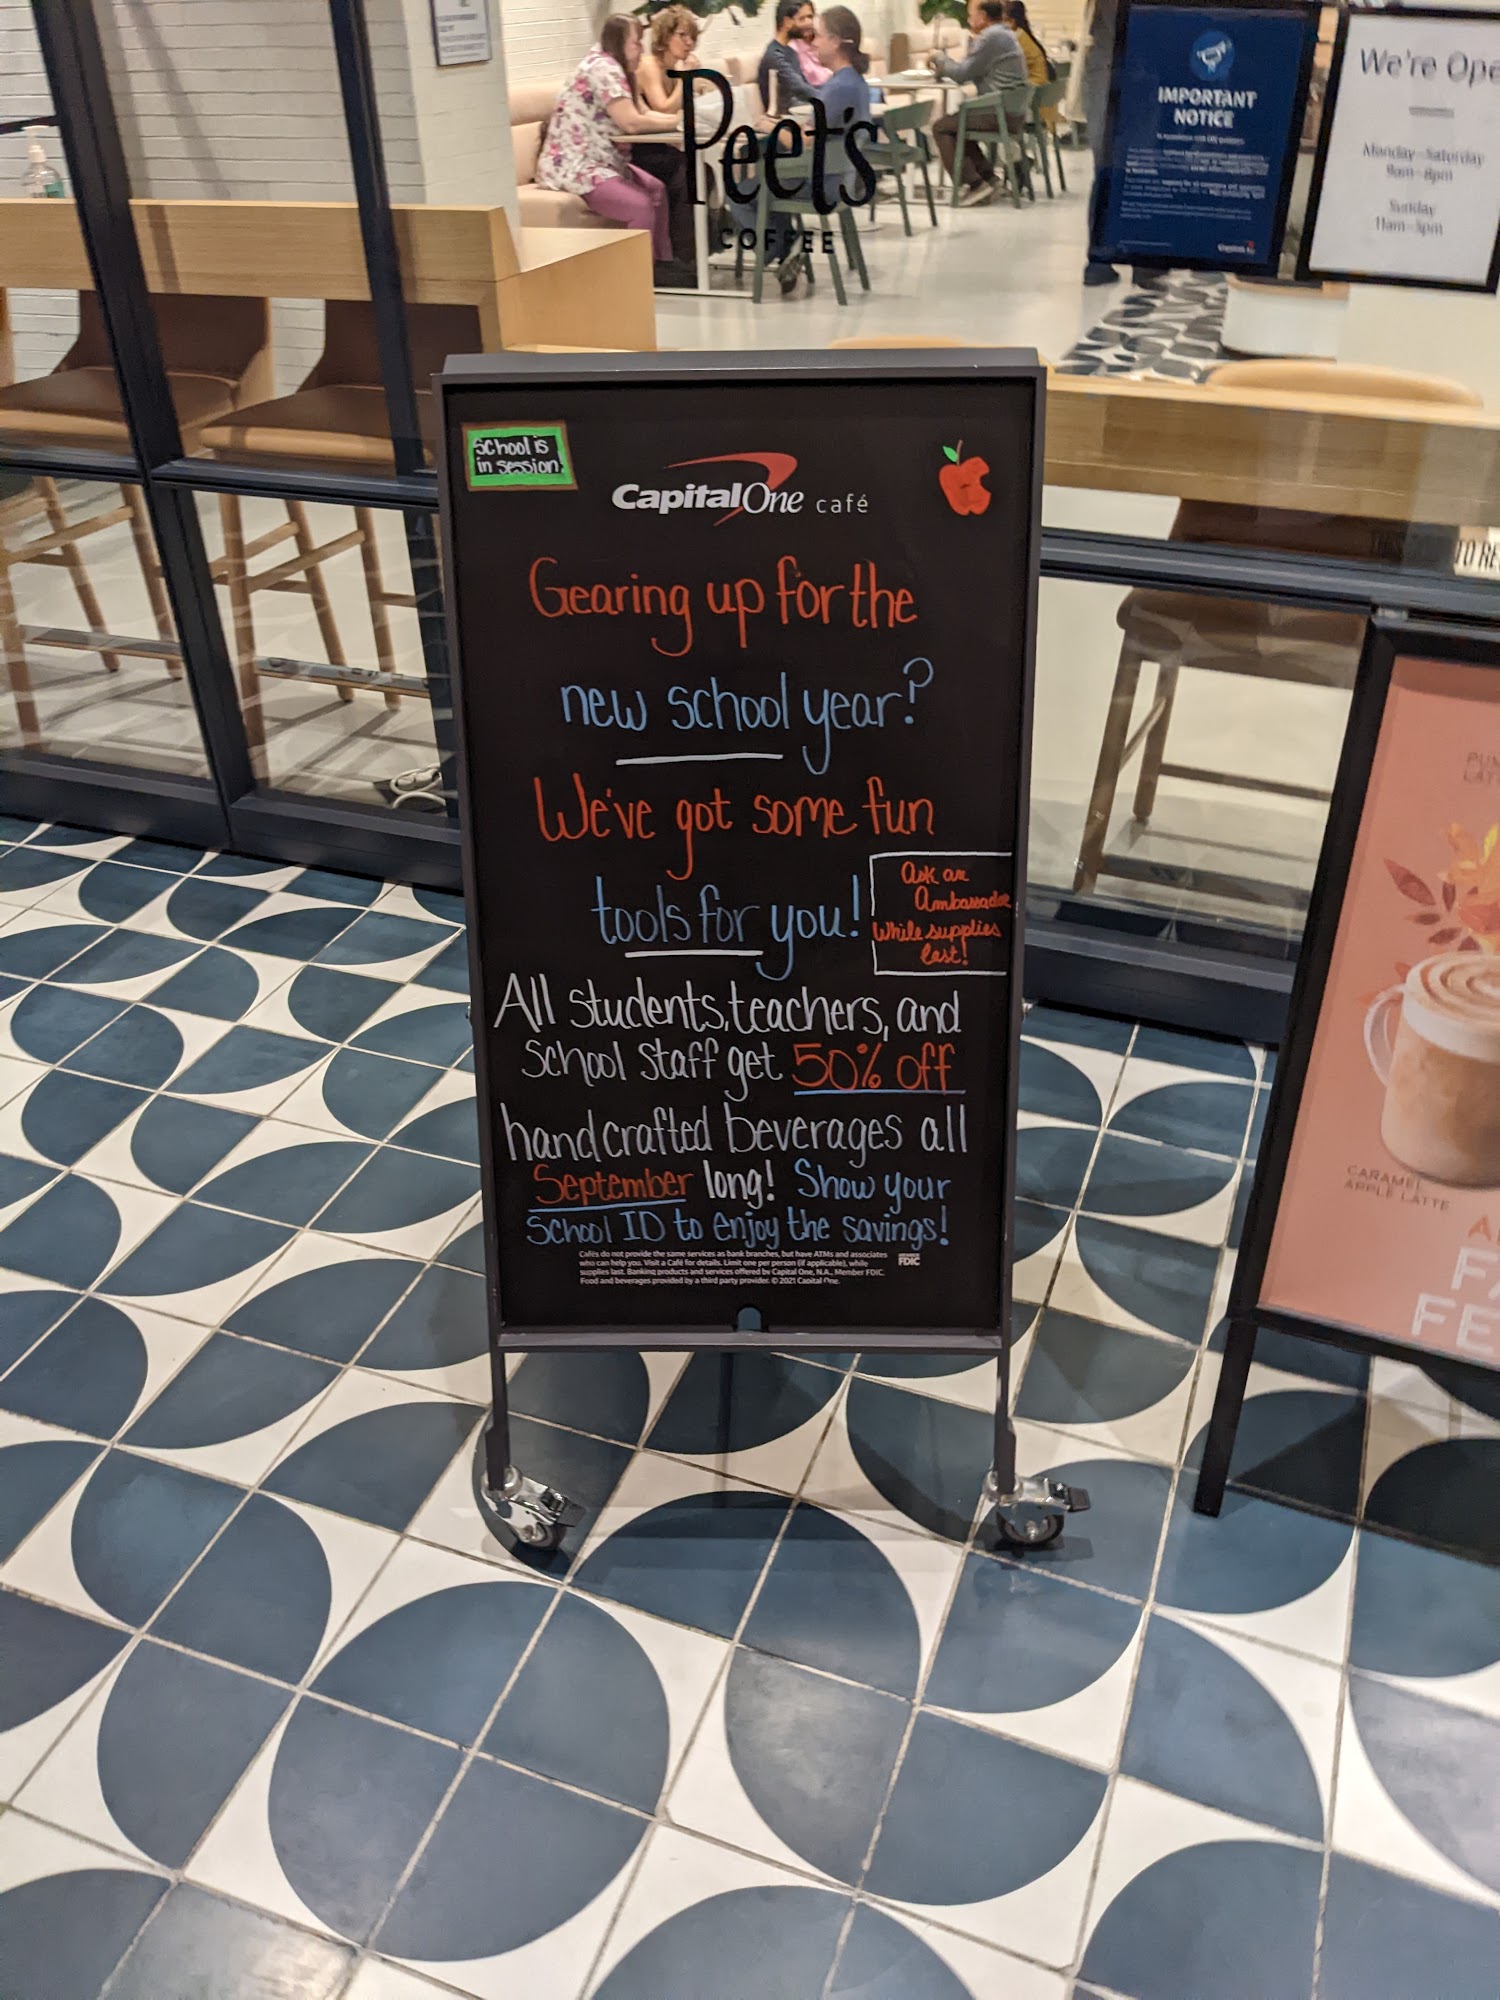 Peet's
COFFEE
IMPORTANT
NOTICE
We're Ope
Monday-Saturday
9am-8pm
Sunday
11am-3pm
School is
in session.
CapitalOne café
Gearing up for the
new school year?
We've got some fun
tools for you!
Ask an
Ambassador
While supplies
last!
All students, teachers, and
school staff get 50% off
handcrafted beverages all
September long! Show your
School ID to enjoy the savings!
Cafés do not provide the same services as bank branches, but have ATMs and associates
who can help you. Visit a Café for details. Limit one per person (if applicable), while
supplies last. Banking products and services offered by Capital One, N.A., Member FDIC.
Food and beverages provided by a third party provider. © 2021 Capital One.
MEMBER
FDIC
TO RE
PUM
LAT
CARAMEL
APPLE LATTE
A
FA
FE